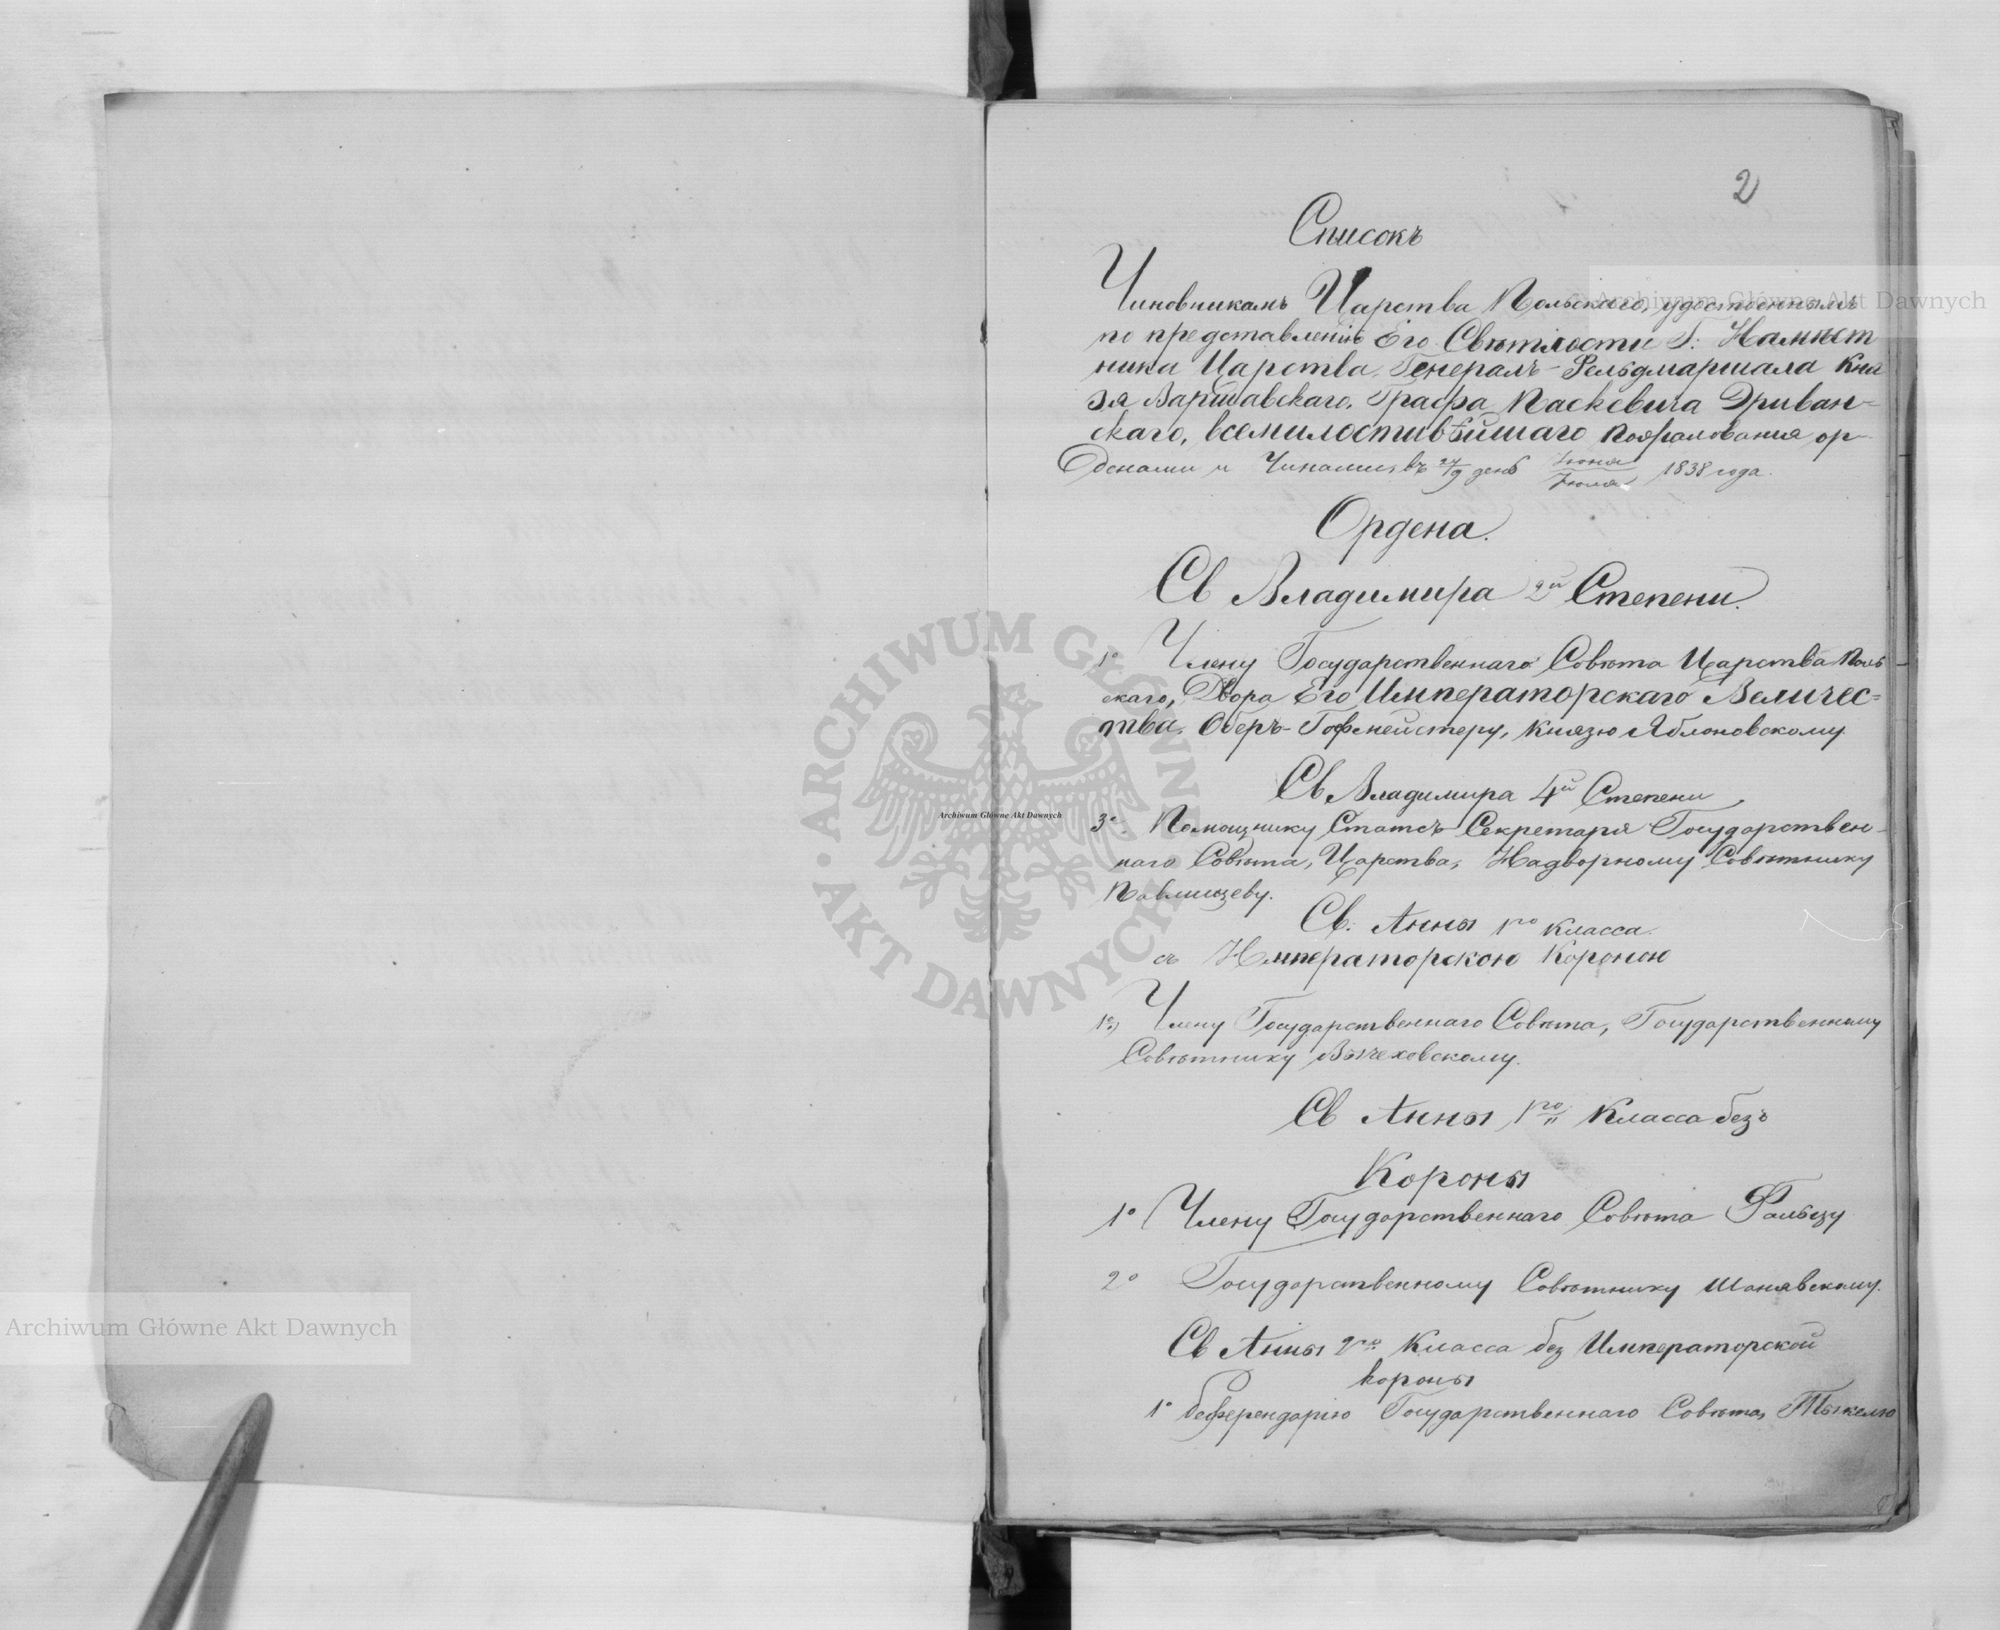 2
Списокъ
Чиновникамъ Царства Польскаго, удостоеннымъ
по представленію Его Свѣтлости Г: Намѣст
ника Царства, Генералъ-Фельдмаршала Кня
зя Варшавскаго, Графа Паскевича Эриван-
скаго, всемилостивѣйшаго пожалованія ор-
денами и Чинами, въ 27/9 день Іюня/Іюля 1838 года.
Ордена.
Св Владимира 2й Степени.
1° Члену Государственнаго Совѣта Царства Поль
скаго, Двора Его Императорскаго Величес=
тва, Оберъ-Гофмейстеру, Князю Яблоновскому
Св Владимира 4й Степени
3° Помощнику Статсъ-Секретаря Государствен-
наго Совѣта, Царства, Надворному Совѣтнику
Павлищеву.
Св: Анны 1го Класса.
съ Императорскою Короною
1°) Члену Государственнаго Совѣта, Государственному
Совѣтнику Вычеховскому.
Св Анны 1го Класса безъ
Короны
1° Члену Государственнаго Совѣта Фальцу
2° Государственному Совѣтнику Шанявскому.
Св Анны 2го Класса без Императорской
короны
1° Референдарію Государственнаго Совѣта, Тыкелю
Archiwum Główne Akt Dawnych
Archiwum Główne Akt Dawnych
Archiwum Główne Akt Dawnych
ARCHIWUM GŁÓWNE AKT DAWNYCH